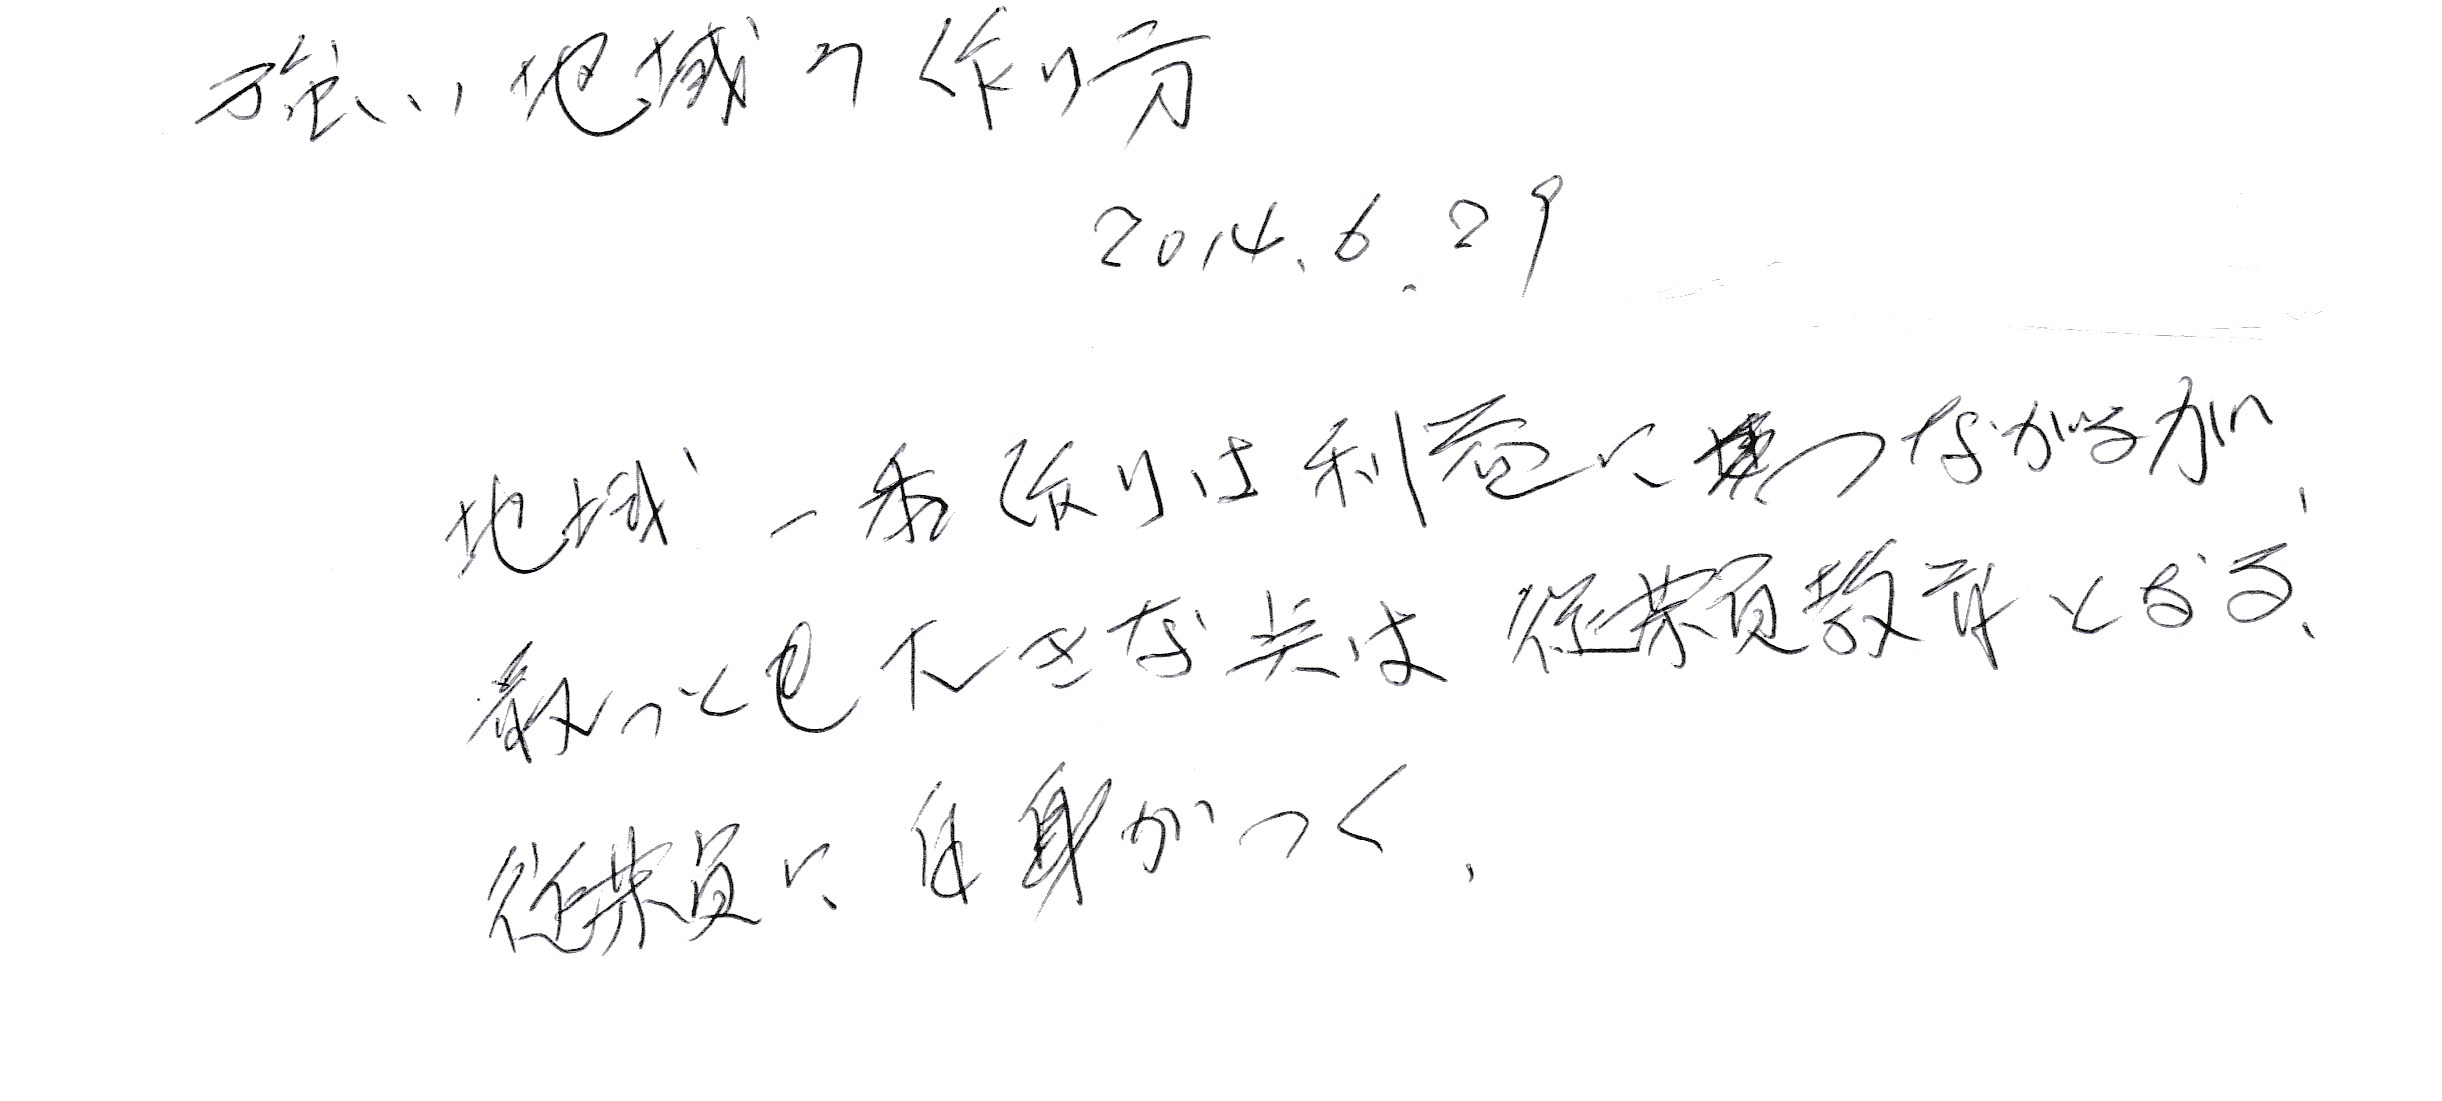 強い地域の作り方
2014.6.29
地域一番作りは利益につながるが、
最っとも大きな点は従業員教育となる、
従業員に自身がつく、